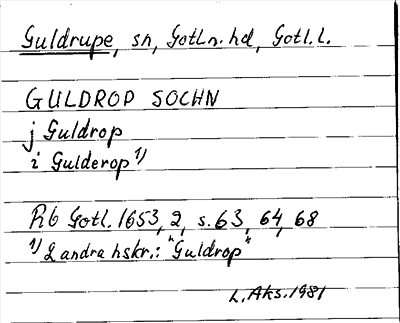 Guldrupe, sn, Gotl.n. hd, Gotl. l.
GULDROP SOCHN
j Guldrop
i Gulderop 1)
Rb Gotl. 1653, 2, s. 63, 64, 68
1) 2 andra hskr.: "Guldrop"
L. Aks. 1981